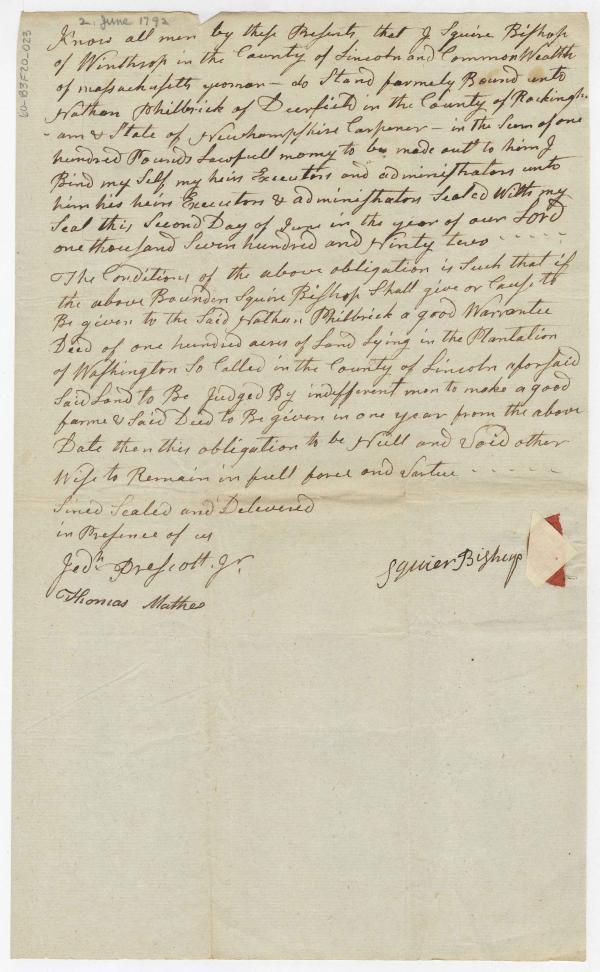 2. June 1792
60-B3F20-023
Know all men by these Presents that I Squire Bishop
of Winthrop in the County of Lincoln and CommonWealth
of massachusetts yeoman - do Stand farmely Bound unto
Nathan Philbrick of Deerfield in the County of Rockingh-
-am & State of Newhampshire Carpener - in the Sum of one
hundred Pounds Lawfull mony to be made out to him I
Bind my Self my heirs Executors and administrators unto
him his heirs Executors & administrators Sealed With my
Seal this Second Day of June in the year of our Lord
one thousand Seven hundred and Ninty two - - - - -
The Conditions of the above obligation is Such that if
the above Bounden Squire Bishop Shall give or Cause to
Be given to the Said Nathan Philbrick a good Warrantee
Deed of one hundred acres of Land Lying in the Plantation
of Washington So Called in the County of Lincoln aforsaid
Said Land to Be Judged By indifferent men to make a good
farme & Said Deed to Be given in one year from the above
Date then this obligation to be Null and Void other
Wise to Remain in full force and Vartue - - - - -
Sined Sealed and Delivered
in Presence of us
Jedh Prescott Jr.
Squier Bishop
Thomas Mathes